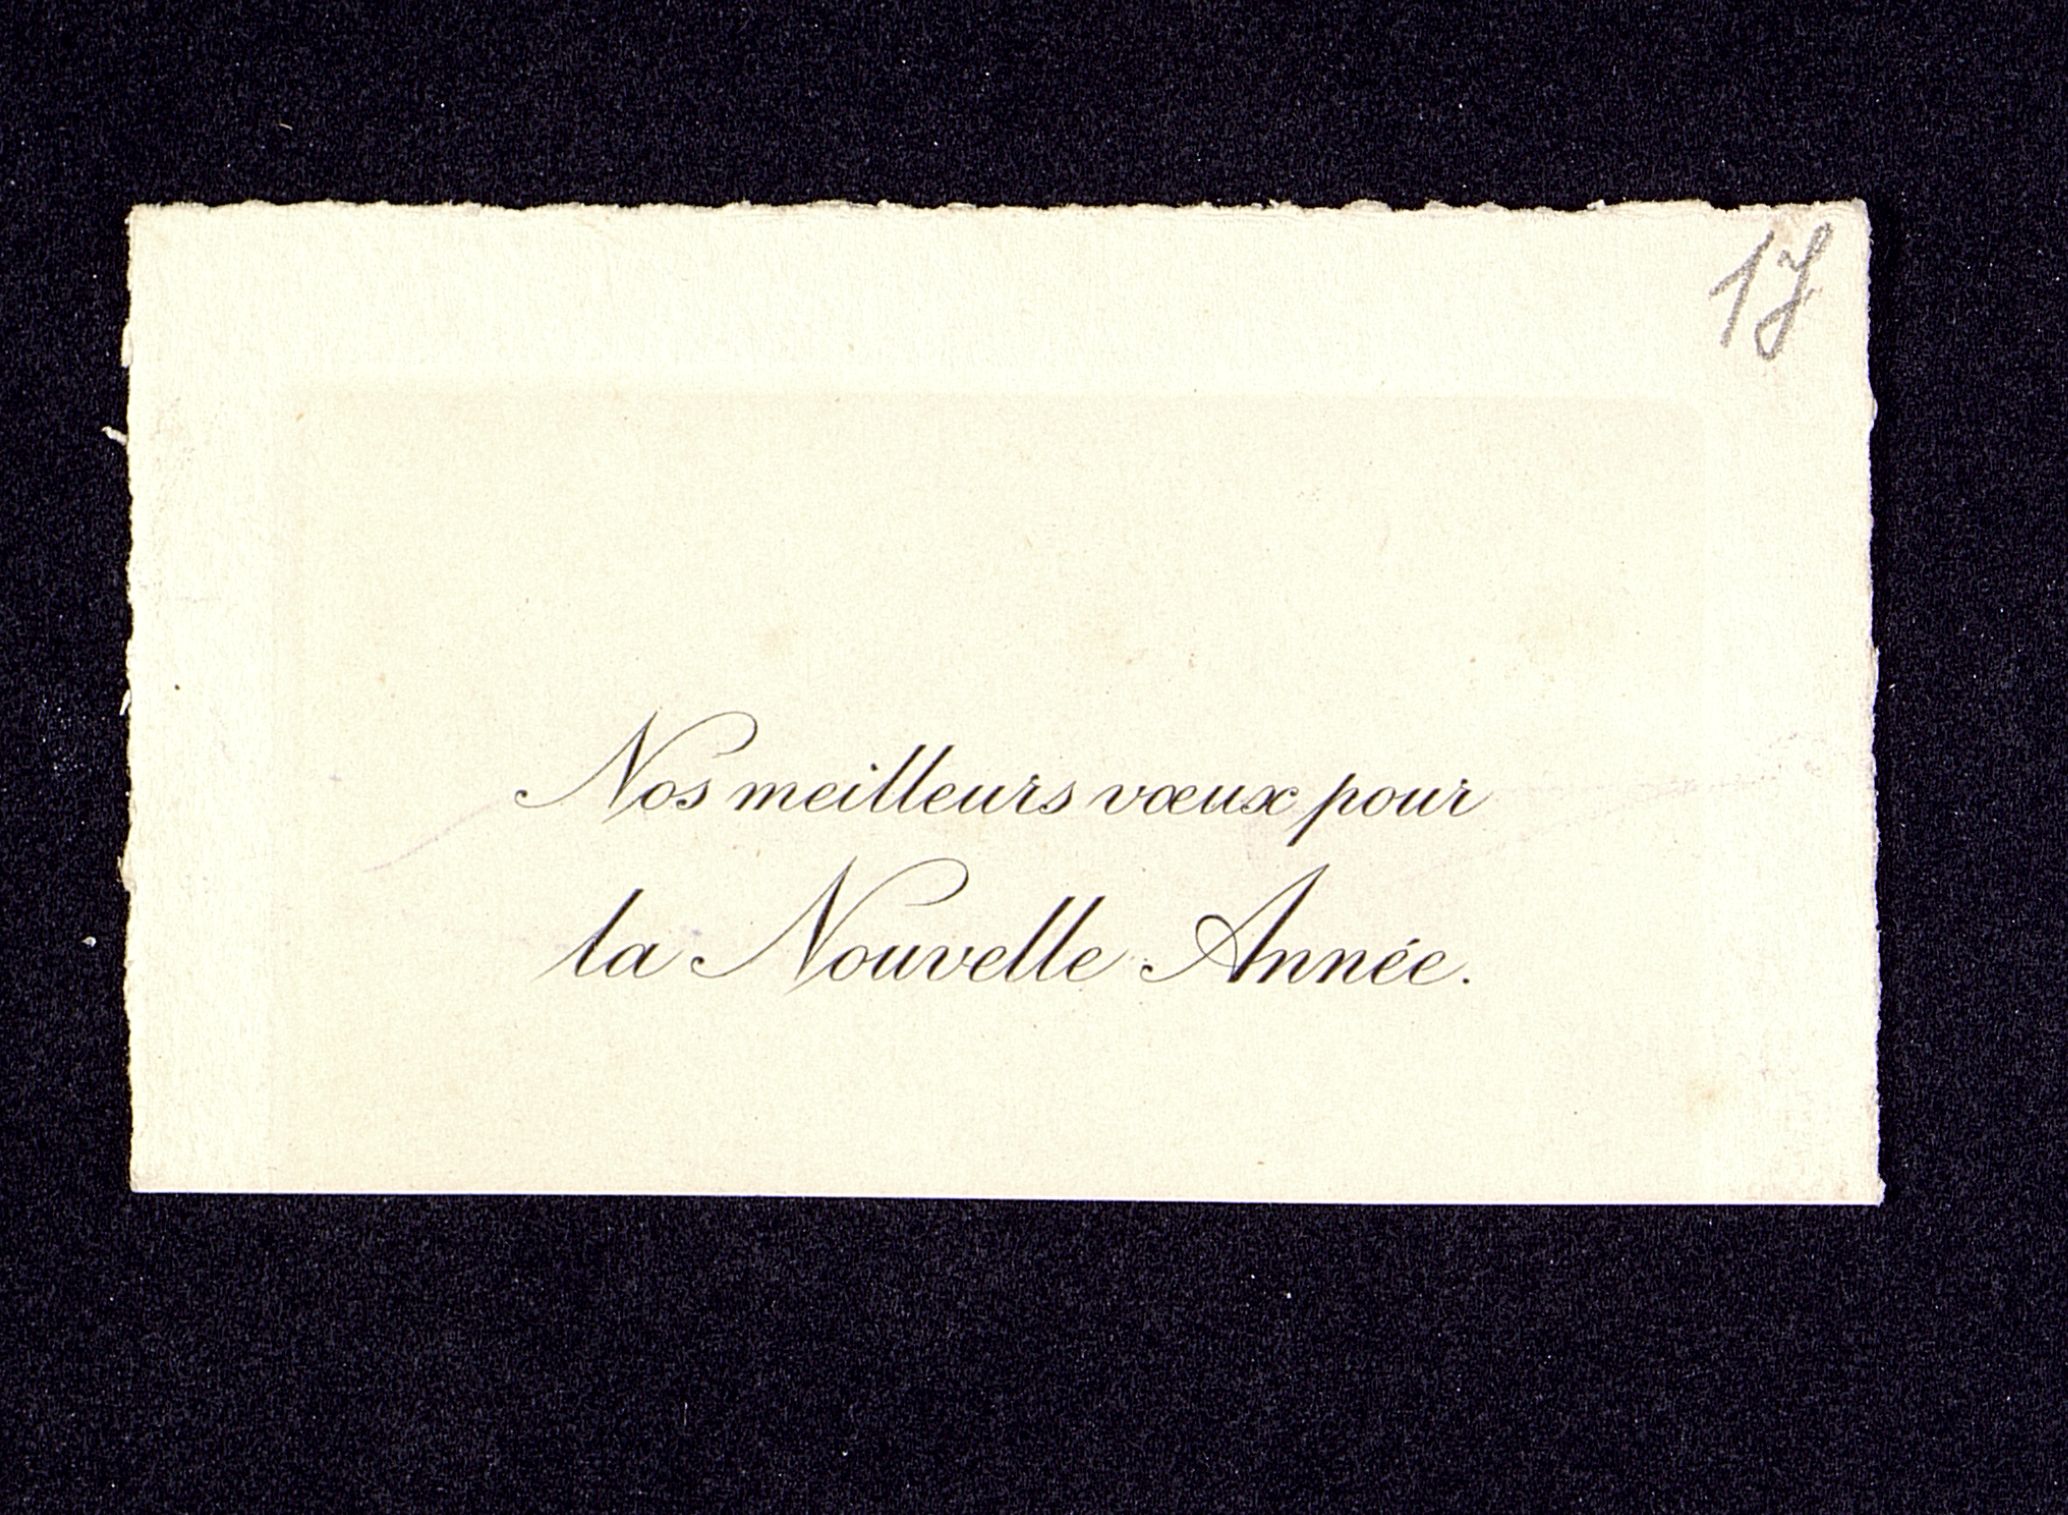 17
Nos meilleurs vœux pour
la Nouvelle Année.